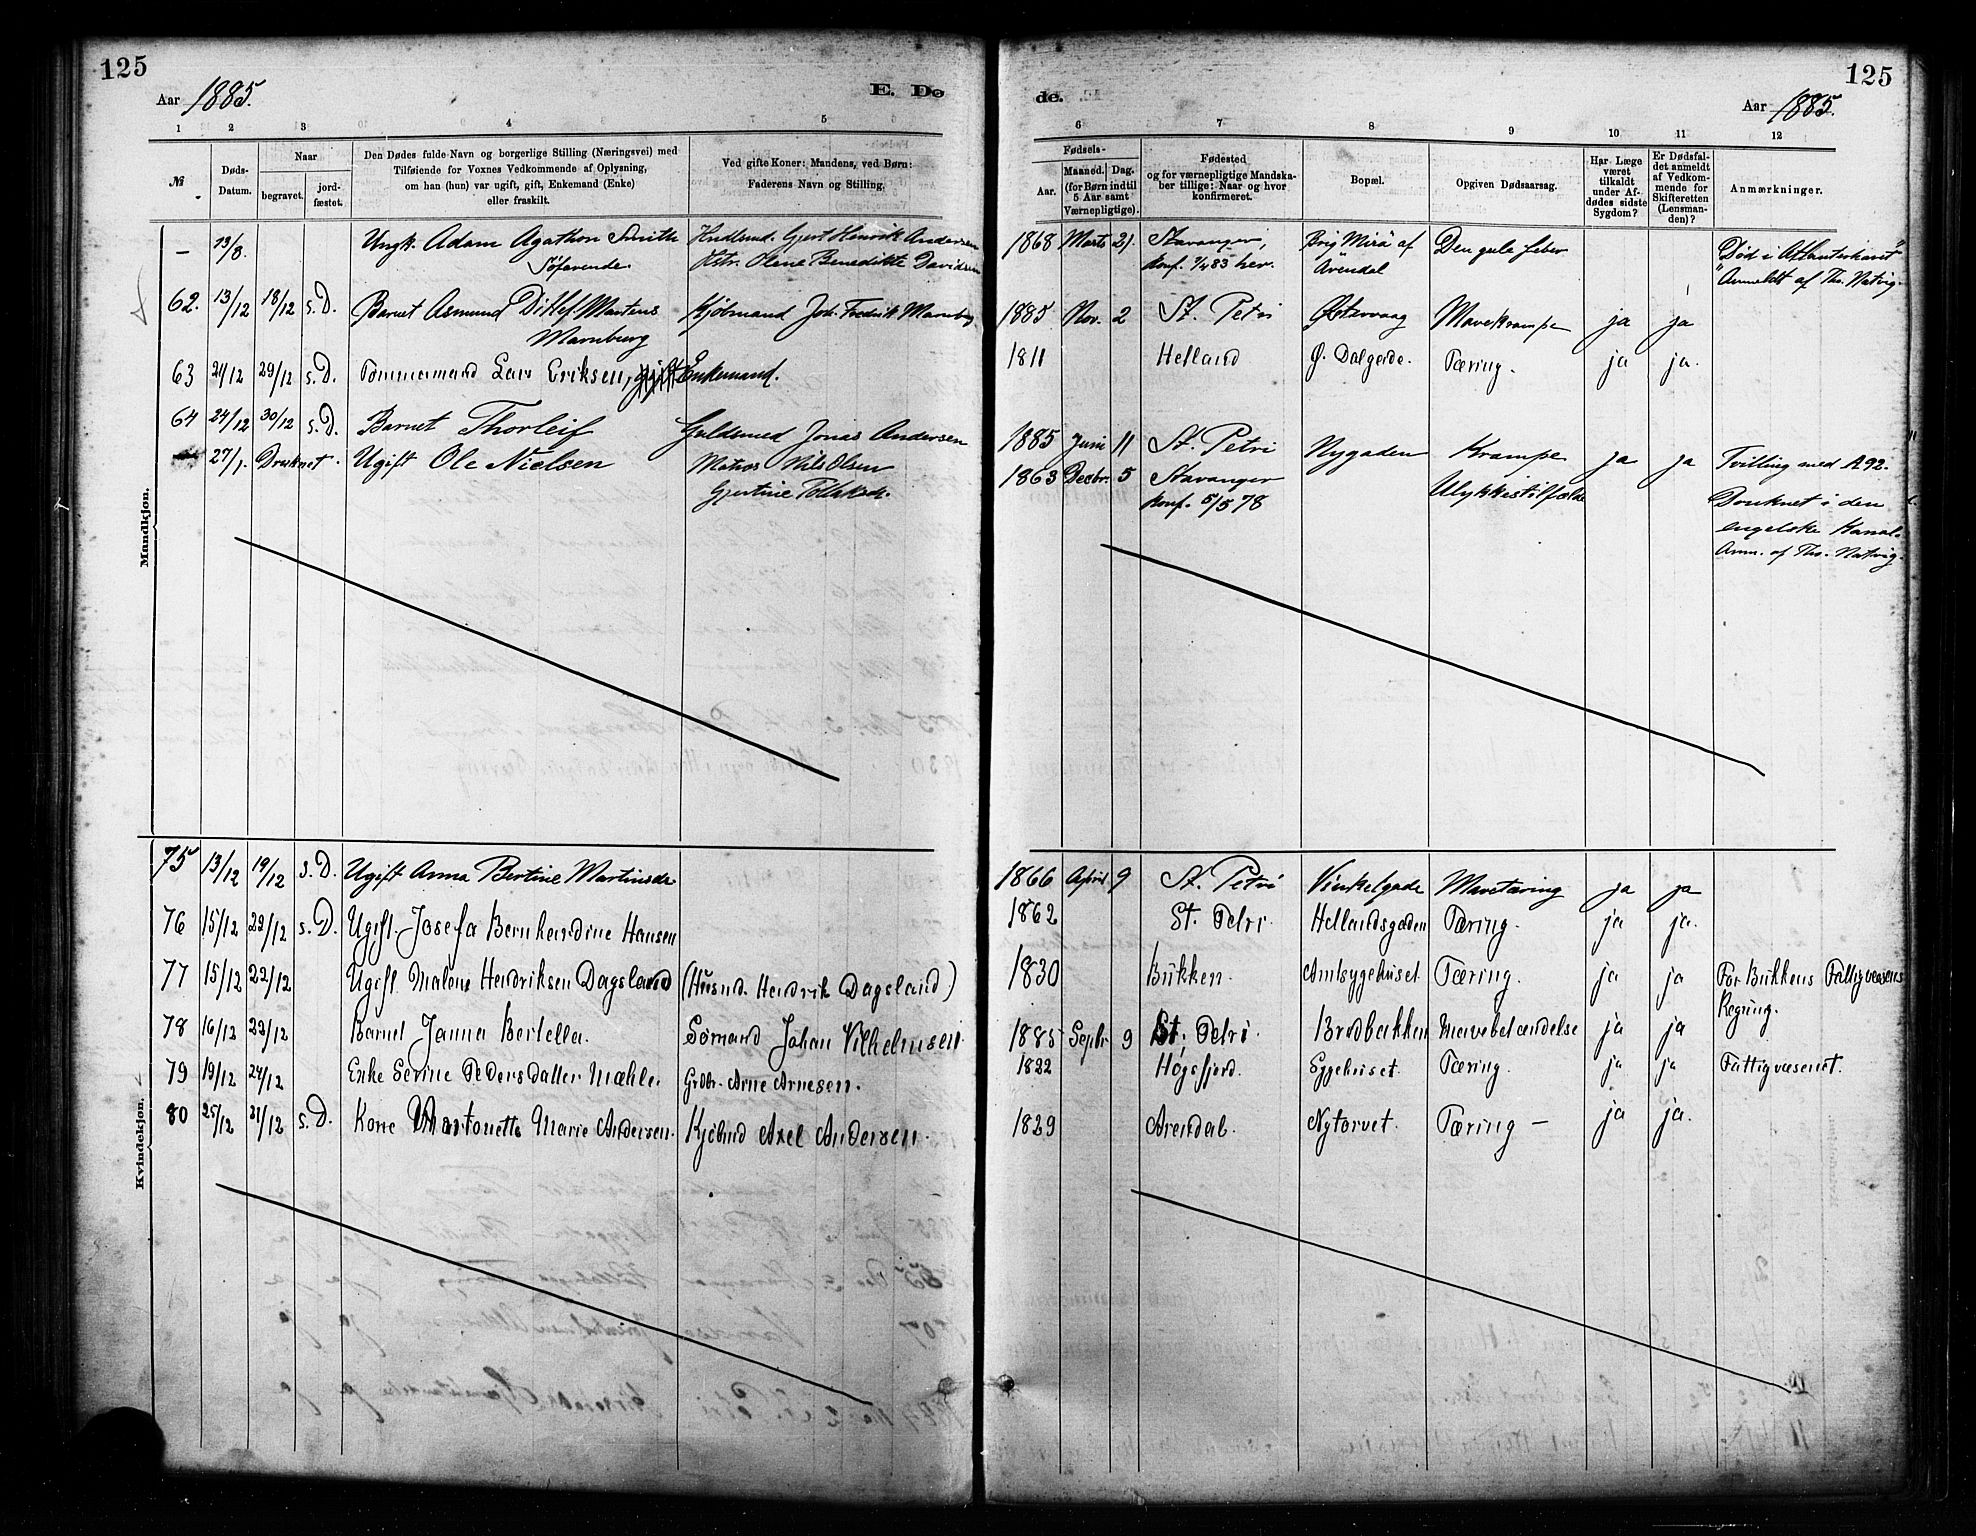 125
Aar 1885.
E. Dø
1 2 3 4 5
№
Døds-Datum.
Naar
begravet.
jord-fæstet.
Den Dødes fulde Navn og borgerlige Stilling (Næringsvei) med
Tilføiende for Voxnes Vedkommende af Oplysning,
om han (hun) var ugift, gift, Enkemand (Enke)
eller fraskilt.
Ved gifte Koner: Mandens, ved Børn:
Faderens Navn og Stilling.
Mandkjøn.
— 13/8. Ungk. Adam Agathon Smith Hndlsmd. Gjert Henrik Andersen
Søfarende Hstr. Olene Benedikte Davidsen
62. 13/12 18/12 s.D. Barnet Asmund Ditlef Martens Kjøbmand Joh. Fredrik Marnburg
Marnburg
63 21/12 29/12 s.D. Tømmermand Lars Eriksen, gift Enkemand.
64 24/12 30/12 s.D. Barnet Thorleif Guldsmed Jonas Andersen
— 27/1. Druknet. Ugift Ole Nielsen Matros Nils Olsen
Gjertine Tollaksdr.
Kvindekjøn.
75 13/12 19/12 s.D. Ugift Anna Bertine Martinsdr
76 15/12 22/12 s.D. Ugift. Josefa Bernhardine Hansen
77 15/12 22/12 Ugift. Malene Hendriksen Dagsland (Husmd. Hendrik Dagsland)
78 16/12 23/12 Barnet Janna Bertella. Sømand Johan Vilhelmsen
79 19/12 24/12 Enke Serine Pedersdatter Mæhle Grdbr. Arne Arnesen.
80 25/12 31/12 s.D. Kone Antonette Marie Andersen. Kjøbmd Axel Andersen.
125
de.
Aar 1885.
6 7 8 9 10 11 12
Fødsels-
Aar.
Maaned. Dag.
(for Børn indtil
5 Aar samt
Værnepligtige).
Fødested
og for værnepligtige Mandska-
ber tillige: Naar og hvor
konfirmeret.
Bopæl.
Opgiven Dødsaarsag.
Har Læge
været
tilkaldt
under Af-
dødes sidste
Sygdom?
Er Dødsfal-
det anmeldt
af Vedkom-
mende for
Skifteretten
(Lensman-
den)?
Anmærkninger.
1868 Marts 21. Stavanger, Brig Mira af Den gule feber Død i Atlanterhavet
Konf. 1/4 83 her. Arendal Anmeldt af Tho. Natvig.
1885 Nov. 2 St. Petri Østervaag Mavekrampe ja ja
1811 Helland Ø. Dalgade. Tæring. ja ja.
1885 Juni 11 St. Petri Nygaden Krampe ja ja Tvilling med A 92.
1863 Decbr. 5 Stavanger Ulykkestilfælde Druknet i den
konf. 5/5 78 engelske Kanal.
Anm. af Tho. Natvig.
1866 April 9 St. Petri Vinkelgade Mavetæring ja ja
1862 St. Petri. Hellandsgaden Tæring. ja ja.
1830 Bukken. Amtsygehuset Tæring. ja ja For Bukkens Fattigvæsens
Regning.
1885 Septbr. 9 St. Petri. Bredbakken Mavebetændelse ja ja
1822 Høgsfjord. Sygehuset. Tæring. ja ja Fattigvæsenet.
1829 Arendal. Nytorvet. Tæring — ja ja.